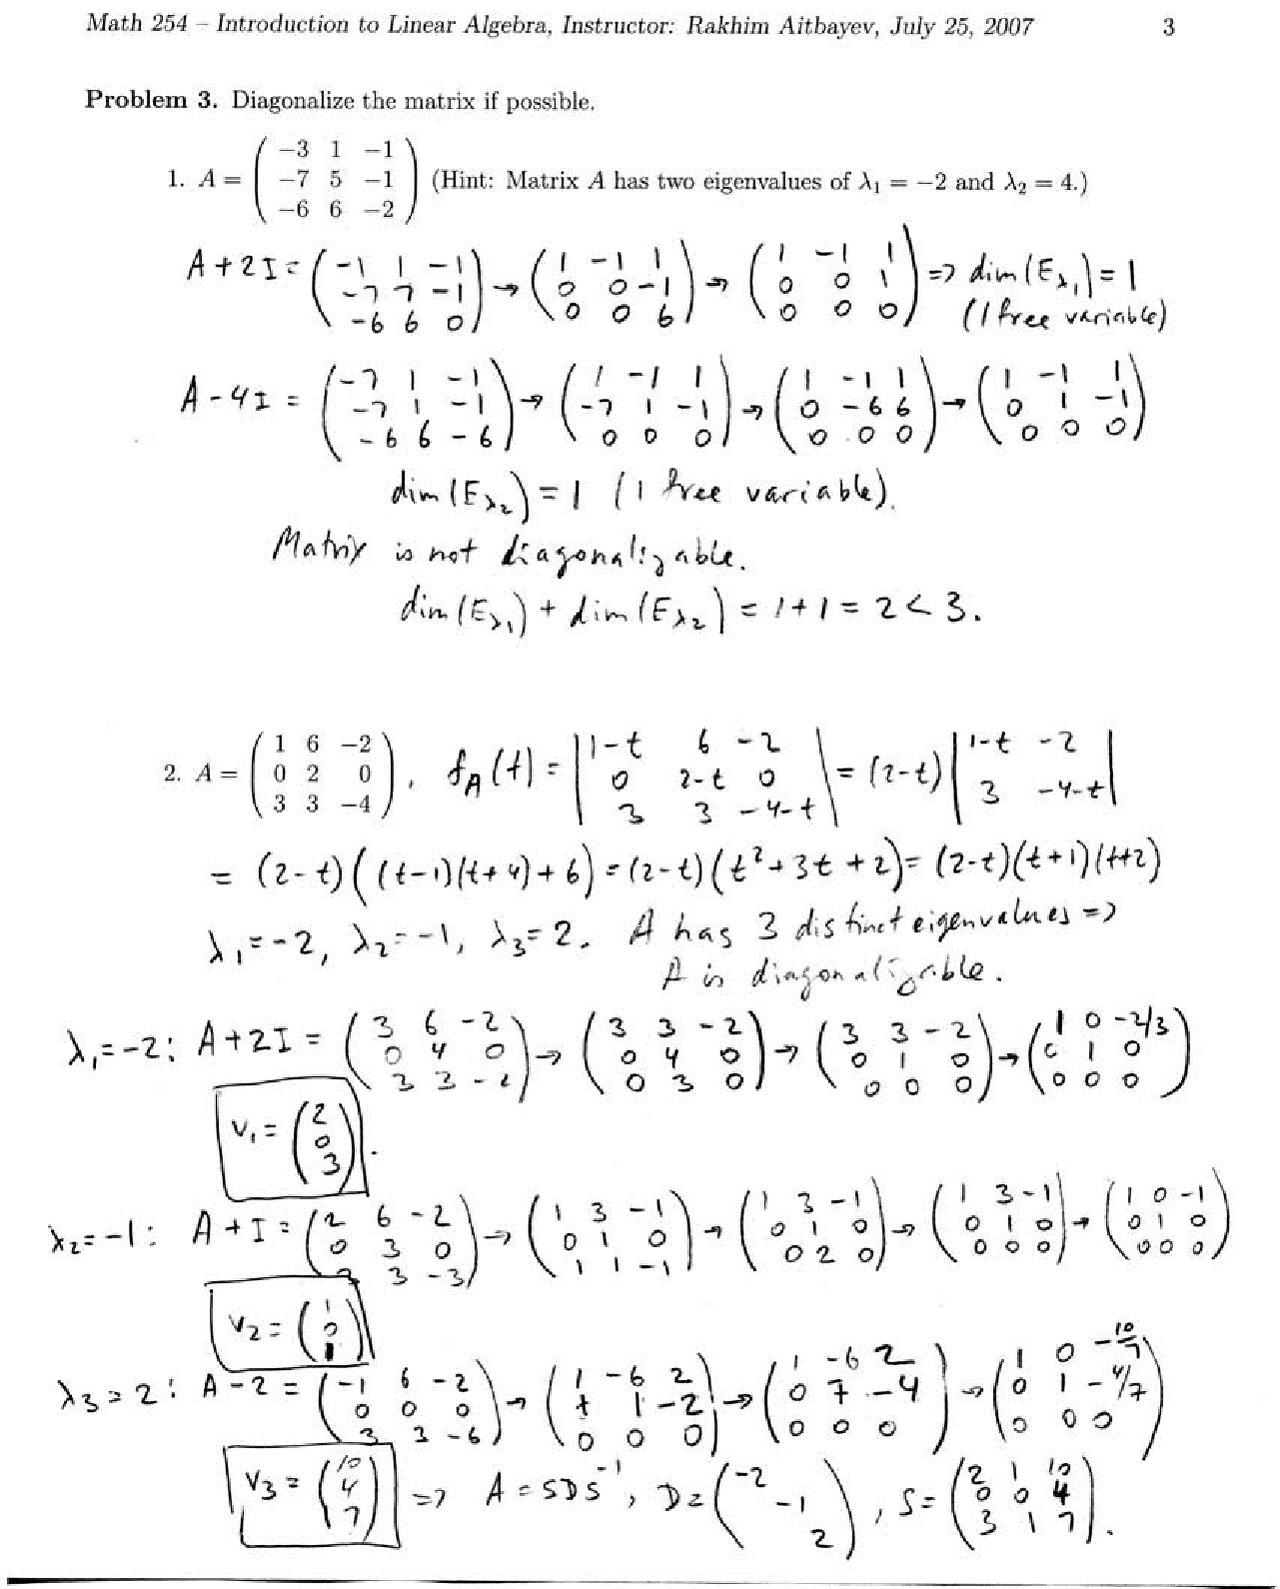 Math 254 – Introduction to Linear Algebra, Instructor: Rakhim Aitbayev, July 25, 2007 3
Problem 3. Diagonalize the matrix if possible.
1. A = ( −3 1 −1 ; −7 5 −1 ; −6 6 −2 ) (Hint: Matrix A has two eigenvalues of λ₁ = −2 and λ₂ = 4.)
A+2I = ( -1 1 -1 ; -7 7 -1 ; -6 6 0 ) → ( 1 -1 1 ; 0 0 -1 ; 0 0 6 ) → ( 1 -1 1 ; 0 0 1 ; 0 0 0 ) => dim(E_λ₁) = 1
(1 free variable)
A-4I = ( -7 1 -1 ; -7 1 -1 ; -6 6 -6 ) → ( 1 -1 1 ; -7 1 -1 ; 0 0 0 ) → ( 1 -1 1 ; 0 -6 6 ; 0 0 0 ) → ( 1 -1 1 ; 0 1 -1 ; 0 0 0 )
dim(E_λ₂) = 1 (1 free variable).
Matrix is not diagonalizable.
dim(E_λ₁) + dim(E_λ₂) = 1+1 = 2 < 3.
2. A = ( 1 6 −2 ; 0 2 0 ; 3 3 −4 ). f_A(t) = | 1-t 6 -2 ; 0 2-t 0 ; 3 3 -4-t | = (2-t) | 1-t -2 ; 3 -4-t |
= (2-t)((t-1)(t+4)+6) = (2-t)(t²+3t+2) = (2-t)(t+1)(t+2)
λ₁=-2, λ₂=-1, λ₃=2. A has 3 distinct eigenvalues =>
A is diagonalizable.
λ₁=-2: A+2I = ( 3 6 -2 ; 0 4 0 ; 3 3 -2 ) → ( 3 3 -2 ; 0 4 0 ; 0 3 0 ) → ( 3 3 -2 ; 0 1 0 ; 0 0 0 ) → ( 1 0 -2/3 ; 0 1 0 ; 0 0 0 )
v₁ = ( 2 ; 0 ; 3 ).
λ₂=-1: A+I = ( 2 6 -2 ; 0 3 0 ; 3 3 -3 ) → ( 1 3 -1 ; 0 1 0 ; 1 1 -1 ) → ( 1 3 -1 ; 0 1 0 ; 0 2 0 ) → ( 1 3 -1 ; 0 1 0 ; 0 0 0 ) → ( 1 0 -1 ; 0 1 0 ; 0 0 0 )
v₂ = ( 1 ; 0 ; 1 )
λ₃=2: A-2 = ( -1 6 -2 ; 0 0 0 ; 3 3 -6 ) → ( 1 -6 2 ; 1 1 -2 ; 0 0 0 ) → ( 1 -6 2 ; 0 7 -4 ; 0 0 0 ) → ( 1 0 -10/7 ; 0 1 -4/7 ; 0 0 0 )
v₃ = ( 10 ; 4 ; 7 ) => A = SDS⁻¹, D = ( -2 ; -1 ; 2 ), S = ( 2 1 10 ; 0 0 4 ; 3 1 7 ).